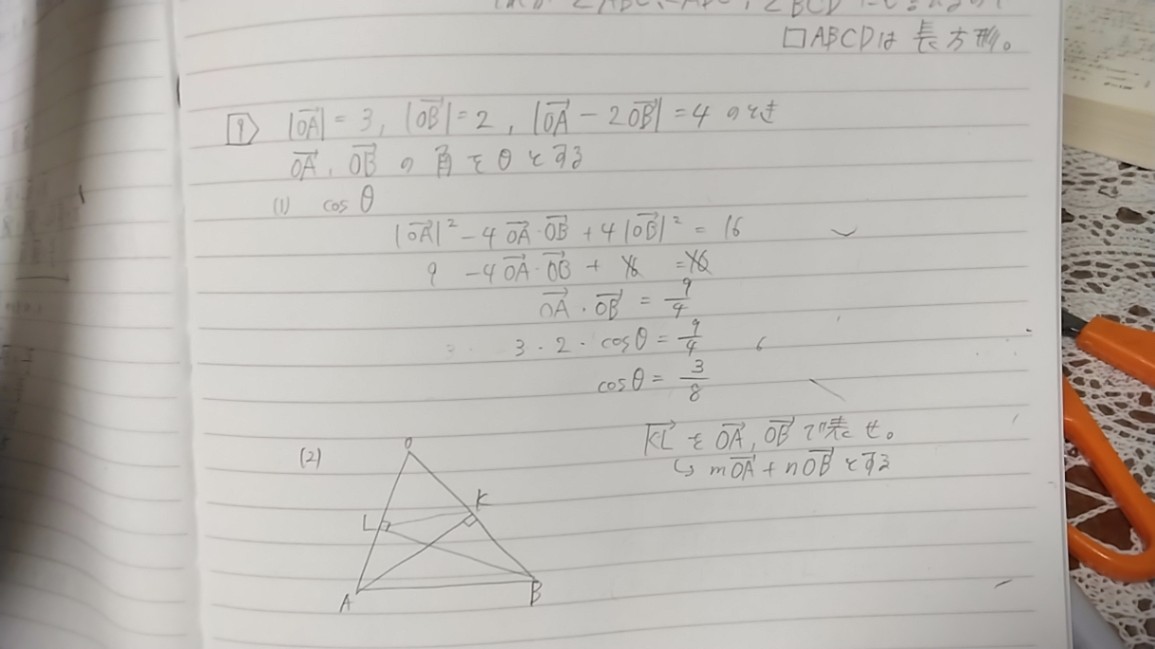 □ABCDは 長方形。
[9] |OA→| = 3, |OB→| = 2, |OA→ − 2OB→| = 4 のとき
OA→, OB→ の 角をθとする
(1) cosθ
|OA→|² − 4OA→・OB→ + 4|OB→|² = 16
9 − 4OA→・OB→ + 16 = 16
OA→・OB→ = 9/4
3・2・cosθ = 9/4
cosθ = 3/8
KL→ を OA→, OB→ で表せ。
↳ mOA→ + nOB→ とする
(2)
O
L
K
A
B